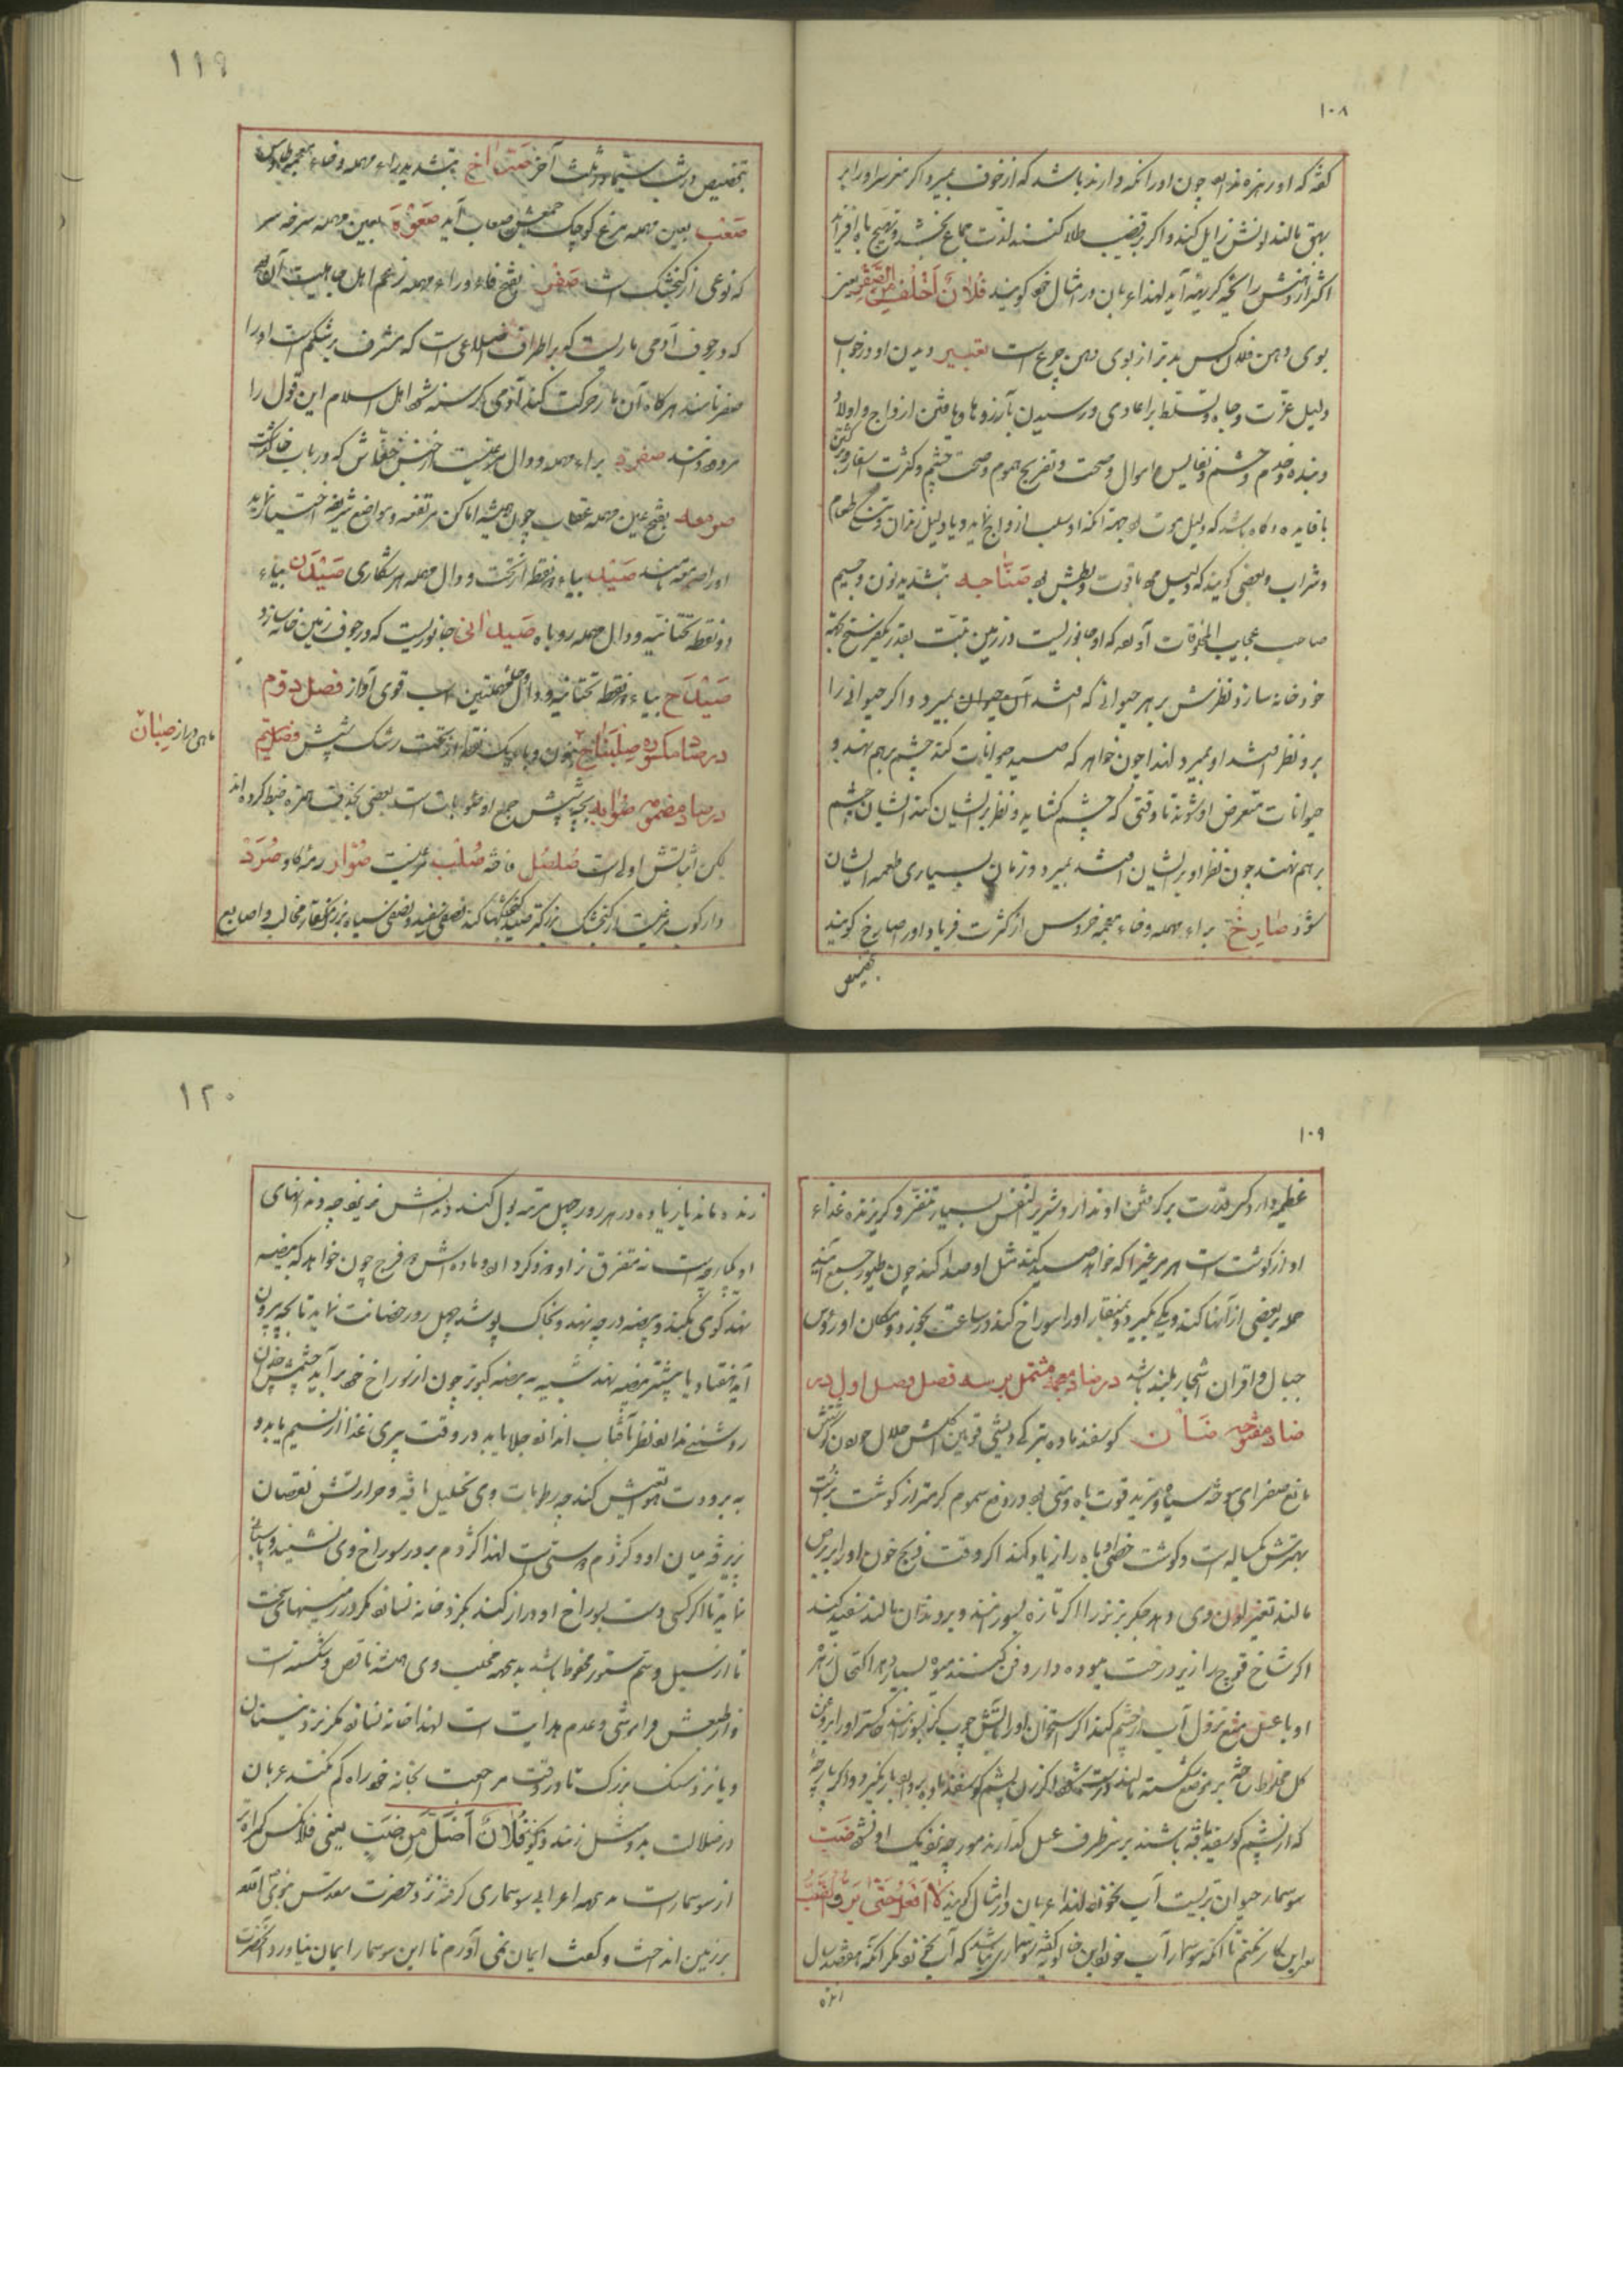 ۱۰۸
گفته که او را زهره نبود چون او را نگه دارند باشد که از خوف بمیرد و اگر مغز سر او را بر
بهق مالند لونش زایل کند و اگر بر قضیب طلا کنند لذت جماع بخشد و تهییج باه افزاید
اکثر از دهنش رایحه کریهه آید لهذا عربان در امثال خود گویند فُلانٌ اَخْلَفُ مِنَ الصَّقْر یعنی
بوی دهن فلان کس بدتر از بوی دهن چرغ است تعبیر دیدن او در خواب
دلیل عزت و جاه و تسلط بر اعادی و رسیدن بآرزوها و یافتن ازواج و اولاد
و بنده و خدم و حشم و نفایس اموال و صحت و تفریح هموم و صحت چشم و کثرت اسفار
با فایده و گاه باشد که دلیل موت بود بجهة آنکه او سلب ازواج نماید و یا دلیل زندان و طعام
و شراب و بعضی گویند که دلیل با قوت و بطش بود صَنّاجه بتشدید نون و جیم
صاحب عجایب المخلوقات آورده که او جانوریست در زمین تبت بقدر یک فرسخ بجهة
خود خانه سازد و نظرش بر هر حیوانی که افتد آن حیوان بمیرد و اگر حیوانی را
برو نظر افتد او بمیرد لهذا چون خواهد که صید حیوانات کند چشم بر هم نهند و
حیوانات متعرض او شوند تا وقتی که چشم گشاید و نظر بر ایشان کند ایشان چشم
بر هم نهند چون نظر او بر ایشان افتد بمیرد و زمان بسیاری طعمه ایشان
شود صارِخ براء مهمله و خاء معجمه خروس از کثرت فریاد او را صارخ گویند
بتخصیص
۱۱۹
بتخصیص در شب سیما در ثلث آخر صَرّاخ بتشدید راء مهمله و خاء معجمه طاوس
صَعْب بعین مهمله مرغ کوچک جمعش صعاب آید صَعْوَة بعین مهمله سرخه سر
که نوعی از گنجشک است صَفَر بفتح فاء و راء مهمله بزعم اهل جاهلیت آن بود
که در جوف آدمی ماریست که بر اطراف اضلاعی است که مشرف بر شکم است او را
صفر نامند هر گاه آن مار حرکت کند آدمی گرسنه شود اهل اسلام این قول را
مردود دانند صفرد براء مهمله و دال مرغیست از جنس خفاش که در باب خا گذشت
صومعه بفتح عین مهمله عقاب چون همیشه اماکن مرتفعه و مواضع شریفه اختیار نماید
او را صومعه نامند صَیْد بیاء دو نقطه از تحت و دال مهمله هر شکاری صَیْدَن بیاء
دو نقطه تحتانیه و دال مهمله روباه صَیدانی جانوریست که در جوف زمین خانه سازد
صَیْدَح بیاء دو نقطه تحتانیه و دال و حاء مهملتین اسب قوی آواز فصل دوم
در صاد مکسوره صِلِنباج بنون و باء یک نقطه از تحت رشک شپش فصل سیم
ماهی دراز صِبْیان
در صاد مضمومه صُوابه بچه شپش جمع او صؤابات است بعضی بحذف همزه ضبط کرده اند
لکن اثباتش اولی است صُلصُل فاخته صُلَّب مرغیست صُوار رمه گاو صُرَد
دارکوب مرغیست از گنجشک بزرگتر صید گنجشکها کند نصفی سفید و نصفی سیاه بزرگ منقار مخالب و اصابع
۱۰۹
عظیمه دارد کس قدرت بر گرفتن او ندارد شریر النفس بسیار متنفر و گریزنده غذاء
او از گوشت است هر مرغی را که خواهد صید کند مثل او صدا کند چون طیور جمع آیند
حمله بر بعضی از آنها کند و یکی بگیرد و بمنقار او را سوراخ کند و در ساعت بخورد و مکان او رؤس
جبال و اقران اشجار بلند باشد در ضاد معجمه مشتمل بر سه فصل فصل اول در
ضاد مفتوحه ضَأْن گوسفند ماده بترکی دیشی قوین گوشتش حلال
مانع صفرای سوخته سیاه و مزید قوت باه و منی بود و دفع سموم گرمتر از گوشت بز است
بهترش یکساله است و گوشت خصی او باه را زیاد کند اگر وقت ذبح خون او را بر برص
مالند تغییر لون وی دهد جگر بز نر را اگر تازه بسوزانند و بر دندان مالند سفید کند
اگر شاخ قوچ را زیر درخت میوه دار دفن کنند میوه بسیار دهد اکتحال زهره
او با عسل منع نزول آب از چشم کند اگر استخوان او را بآتش چوب گز بسوزانند خاکستر او را بروغن
گل مخلوط ساخته بر موضع شکسته مالند درست شود اگر زن پشم گوسفند ماده بردارد بار نگیرد و اگر پارچه
که از پشم گوسفند بافته باشند بر سر ظرف عسل گذارند مورچه نزدیک او نشود ضَبّ
سوسمار حیوان تریست آب نخورد لهذا عربان در امثال گویند لا اَفْعَلُ حَتّی یَرِدَ الضَّبُّ
یعنی این کار نکنم تا آنکه سوسمار آب خورد ابن خالویه گفته سوسماری باشد که آب نخورد مگر آنکه هفتصد سال
زنده
۱۲۰
زنده ماند یا زیاده و در هر روز چهل مرتبه بول کند دندانش نریزد چه دندانهای
او یکپارچه است نه متفرق نر او دو ذکر دارد و ماده اش دو فرج چون خواهد که بیضه
نهد گوی بکند و بیضه در چه نهد و بخاک پوشد چهل روز حضانت نماید تا بچه بیرون
آید هفتاد یا بیشتر بیضه نهد شبیه به بیضه کبوتر چون از سوراخ خود بر آید چشمش چون
روشنی ندارد نظر بآفتاب اندازد جلا یابد در وقت پیری غذا از نسیم یابد و
به برودت هوا تعیش کند چه رطوبات وی تحلیل یافته و حرارتش نقصان
پذیرفته میان او و کژدم دوستی است لهذا کژدم بر در سوراخ وی نشیند و پاسبانی
نماید تا اگر کسی دست بسوراخ او دراز کند بگزد خانه نسازد مگر در زمینهای سخت
تا از سیل و سم ستور محفوظ باشد بدینجهة مخلب وی همیشه ناقص و شکسته است
و از طبعش فراموشی و عدم هدایت است لهذا خانه نسازد مگر نزد نیستان
و یا نزد سنگ بزرگ تا در وقت مراجعت بخانه خود راه گم نکند عربان
در ضلالت بدو مثل زنند و گویند فُلانٌ اَضَلُّ مِن ضَبٍّ یعنی فلان کس گمراه تر
از سوسمار است بدینجهة اعرابی سوسماری گرفته نزد حضرت مقدس نبوی آورده
بر زمین انداخت و گفت ایمان نمی آورم تا این سوسمار ایمان نیاورد آنحضرت